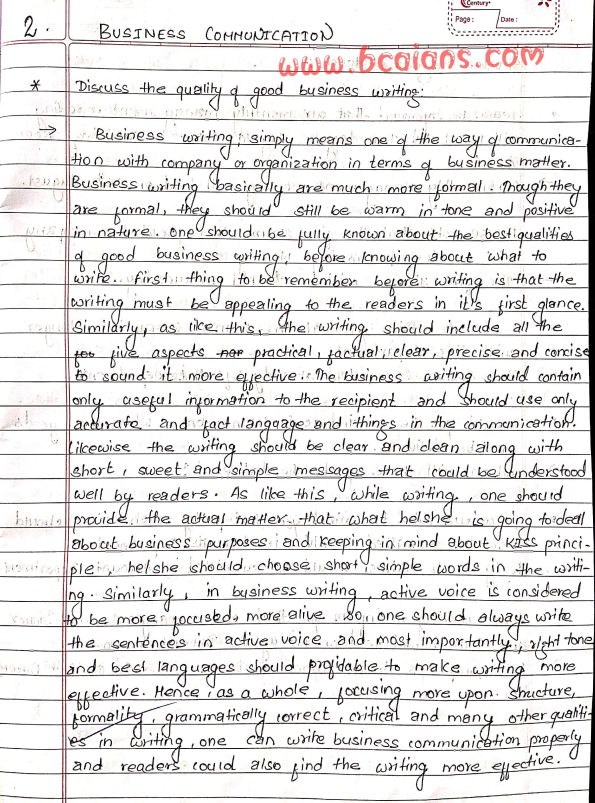 Century
Page: Date:
2. BUSINESS COMMUNICATION
www.bcaians.com
* Discuss the quality of good business writing:
→ Business writing, simply means one of the way of communica-
tion with company or organization in terms of business matter.
Business writing basically are much more formal. Though they
are formal, they should still be warm in tone and positive
in nature. one should be fully known about the best qualities
of good business writing, before knowing about what to
write. first thing to be remember before writing is that the
writing must be appealing to the readers in it's first glance.
Similarly, as like this, the writing should include all the
five aspects practical, factual, clear, precise and concise
to sound it more effective. The business writing should contain
only useful information to the recipient and should use only
accurate and fact language and things in the communication.
likewise the writing should be clear and clean along with
short, sweet and simple messages that could be understood
well by readers. As like this, while writing, one should
provide the actual matter that what he/she is going to deal
about business purposes and keeping in mind about KISS princi-
ple, he/she should choose short, simple words in the writi-
ng. Similarly, in business writing, active voice is considered
to be more focused, more alive so, one should always write
the sentences in active voice and most importantly, right tone
and best languages should profidable to make writing more
effective. Hence, as a whole, focusing more upon structure,
formality, grammatically correct, critical and many other qualiti-
es in writing, one can write business communication properly
and readers could also find the writing more effective.